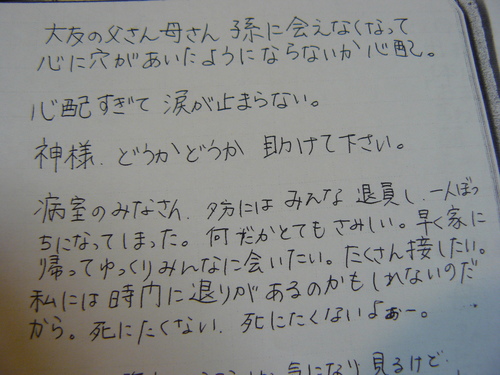 大友の父さん母さん 孫に会えなくなって
心に穴があいたようにならないか心配。
心配すぎて 涙が止まらない。
神様、どうかどうか 助けて下さい。
病室のみなさん、夕方には みんな 退員し、一人ぼっ
ちになってしまった。何だかとてもさみしい。早く家に
帰ってゆっくりみんなに会いたい。たくさん接したい。
私には 時間に退りがあるのかもしれないのだ
から。死にたくない、死にたくないよぉー。
気になり 見るけど、